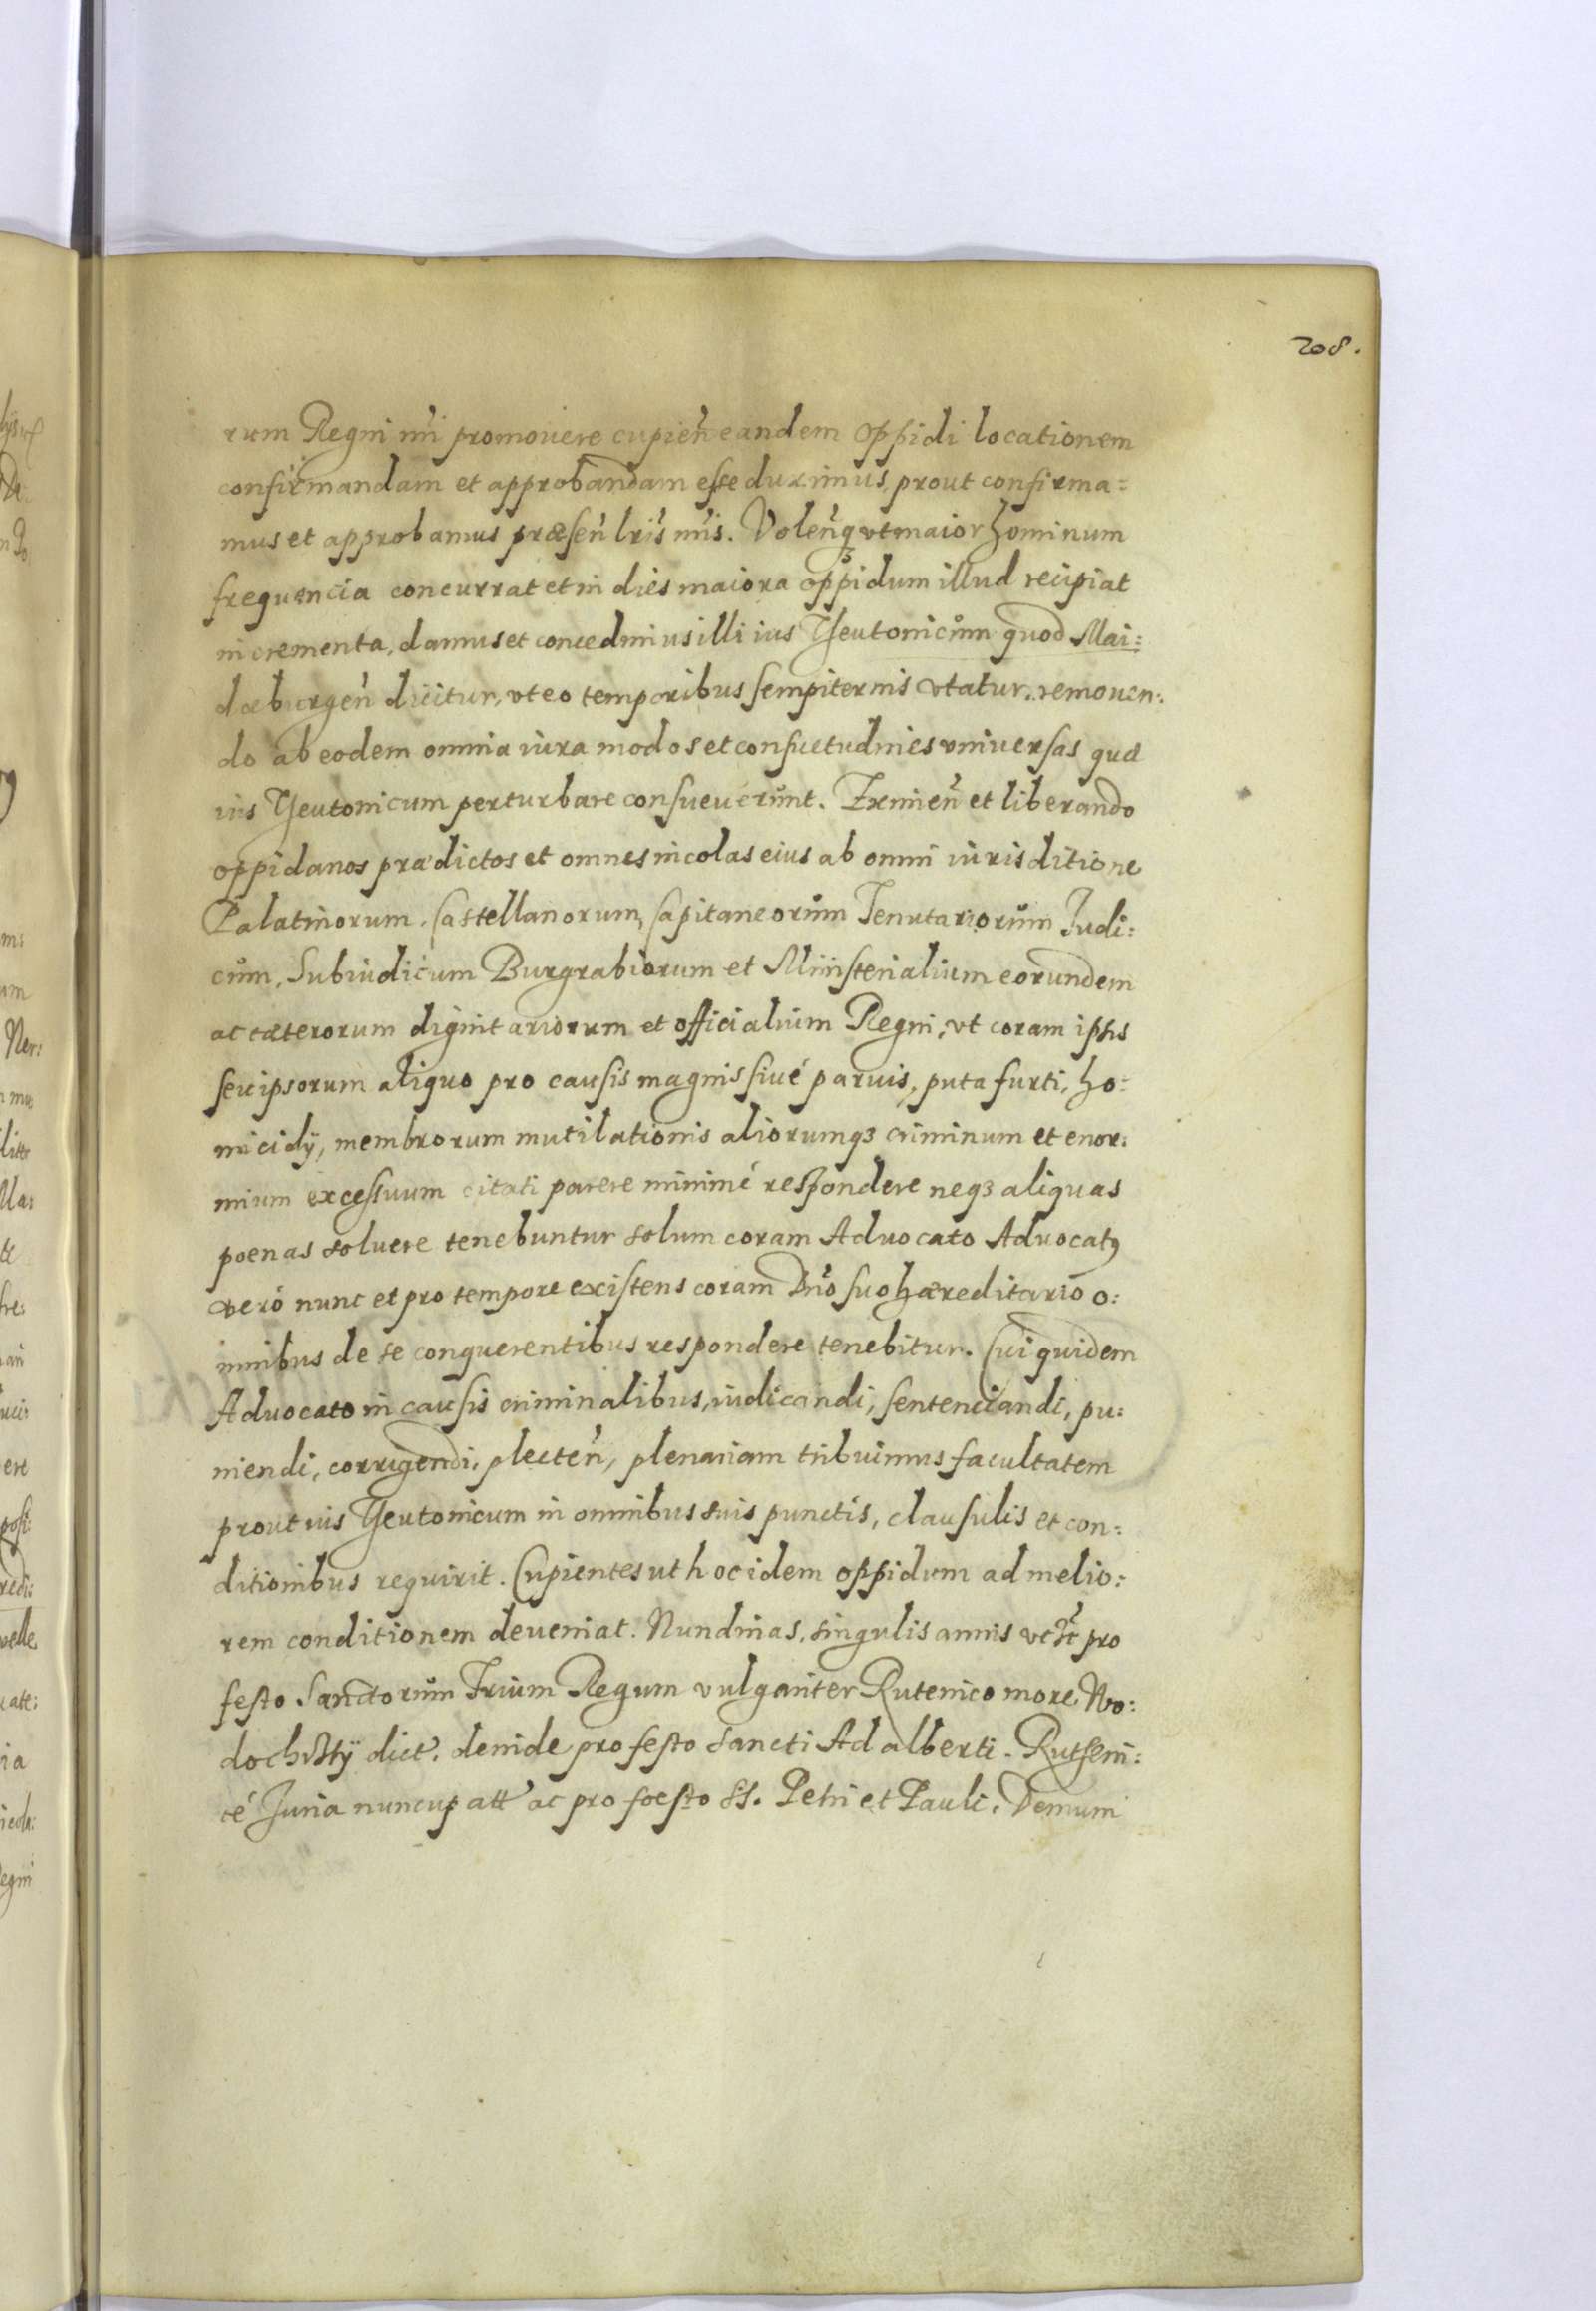 208.
rum Regni nri promouere cupień eandem oppidi locationem
confirmandam et approbandam esse duximus, prout confirma=
mus et approbamus præseń lris nris. Voleńqȝ vt maior hominum
frequencia concurrat et in dies maiora oppidum illud recipiat
incrementa, damus et concedimus illi ius Theutonicum quod Mai=
dæburgeń dicitur, vt eo temporibus sempiternis vtatur, remouen:
do ab eodem omnia iura modos et consuetudines vniuersas quæ
ius Theutonicum perturbare consueuerunt. Eximień et liberando
oppidanos prædictos et omnes incolas eius ab omni iurisditione
Palatinorum, Castellanorum, Capitaneorum Tenutariorum Judi:
cum, Subiudicum Burgrabiorum et Ministerialium eorundem
ac cæterorum dignitariorum et officialium Regni, vt coram ipsis
seu ipsorum aliquo pro causis magnis siué paruis, puta furti, ho=
micidÿ, membrorum mutilationis aliorumqȝ criminum et enor:
mium excessuum citati parere minimé respondere neqȝ aliquas
poenas soluere tenebuntur solum coram Aduocato Aduocatꝰ
veró nunc et pro tempore existens coram Dńo suo hæreditario o:
mnibus de se conquerentibus respondere tenebitur. Cui quidem
Aduocato in causis criminalibus, iudicandi, sentenciandi, pu:
niendi, corrigendi, plecteń, plenariam tribuimus facultatem
prout ius Theutonicum in omnibus suis punctis, clausulis et con:
ditionibus requirit. Cupientes ut hoc idem oppidum ad melio:
rem conditionem deueniat. Nundinas, singulis annis pro
festo Sanctorum Trium Regum vulgariter Rutenico more, Wo:
dochrstÿ dict. deinde pro festo Sancti Adalberti. Rutheni:
cé Juria nuncupatt ac pro foesto SS. Petri et Pauli, Demum